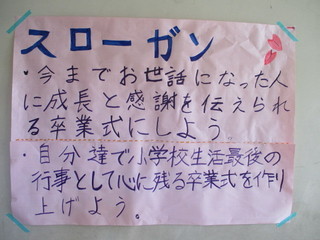 スローガン
・今までお世話になった人
に成長と感謝を伝えられ
る卒業式にしよう
・自分達で小学校生活最後の
行事として心に残る卒業式を作り
上げよう。